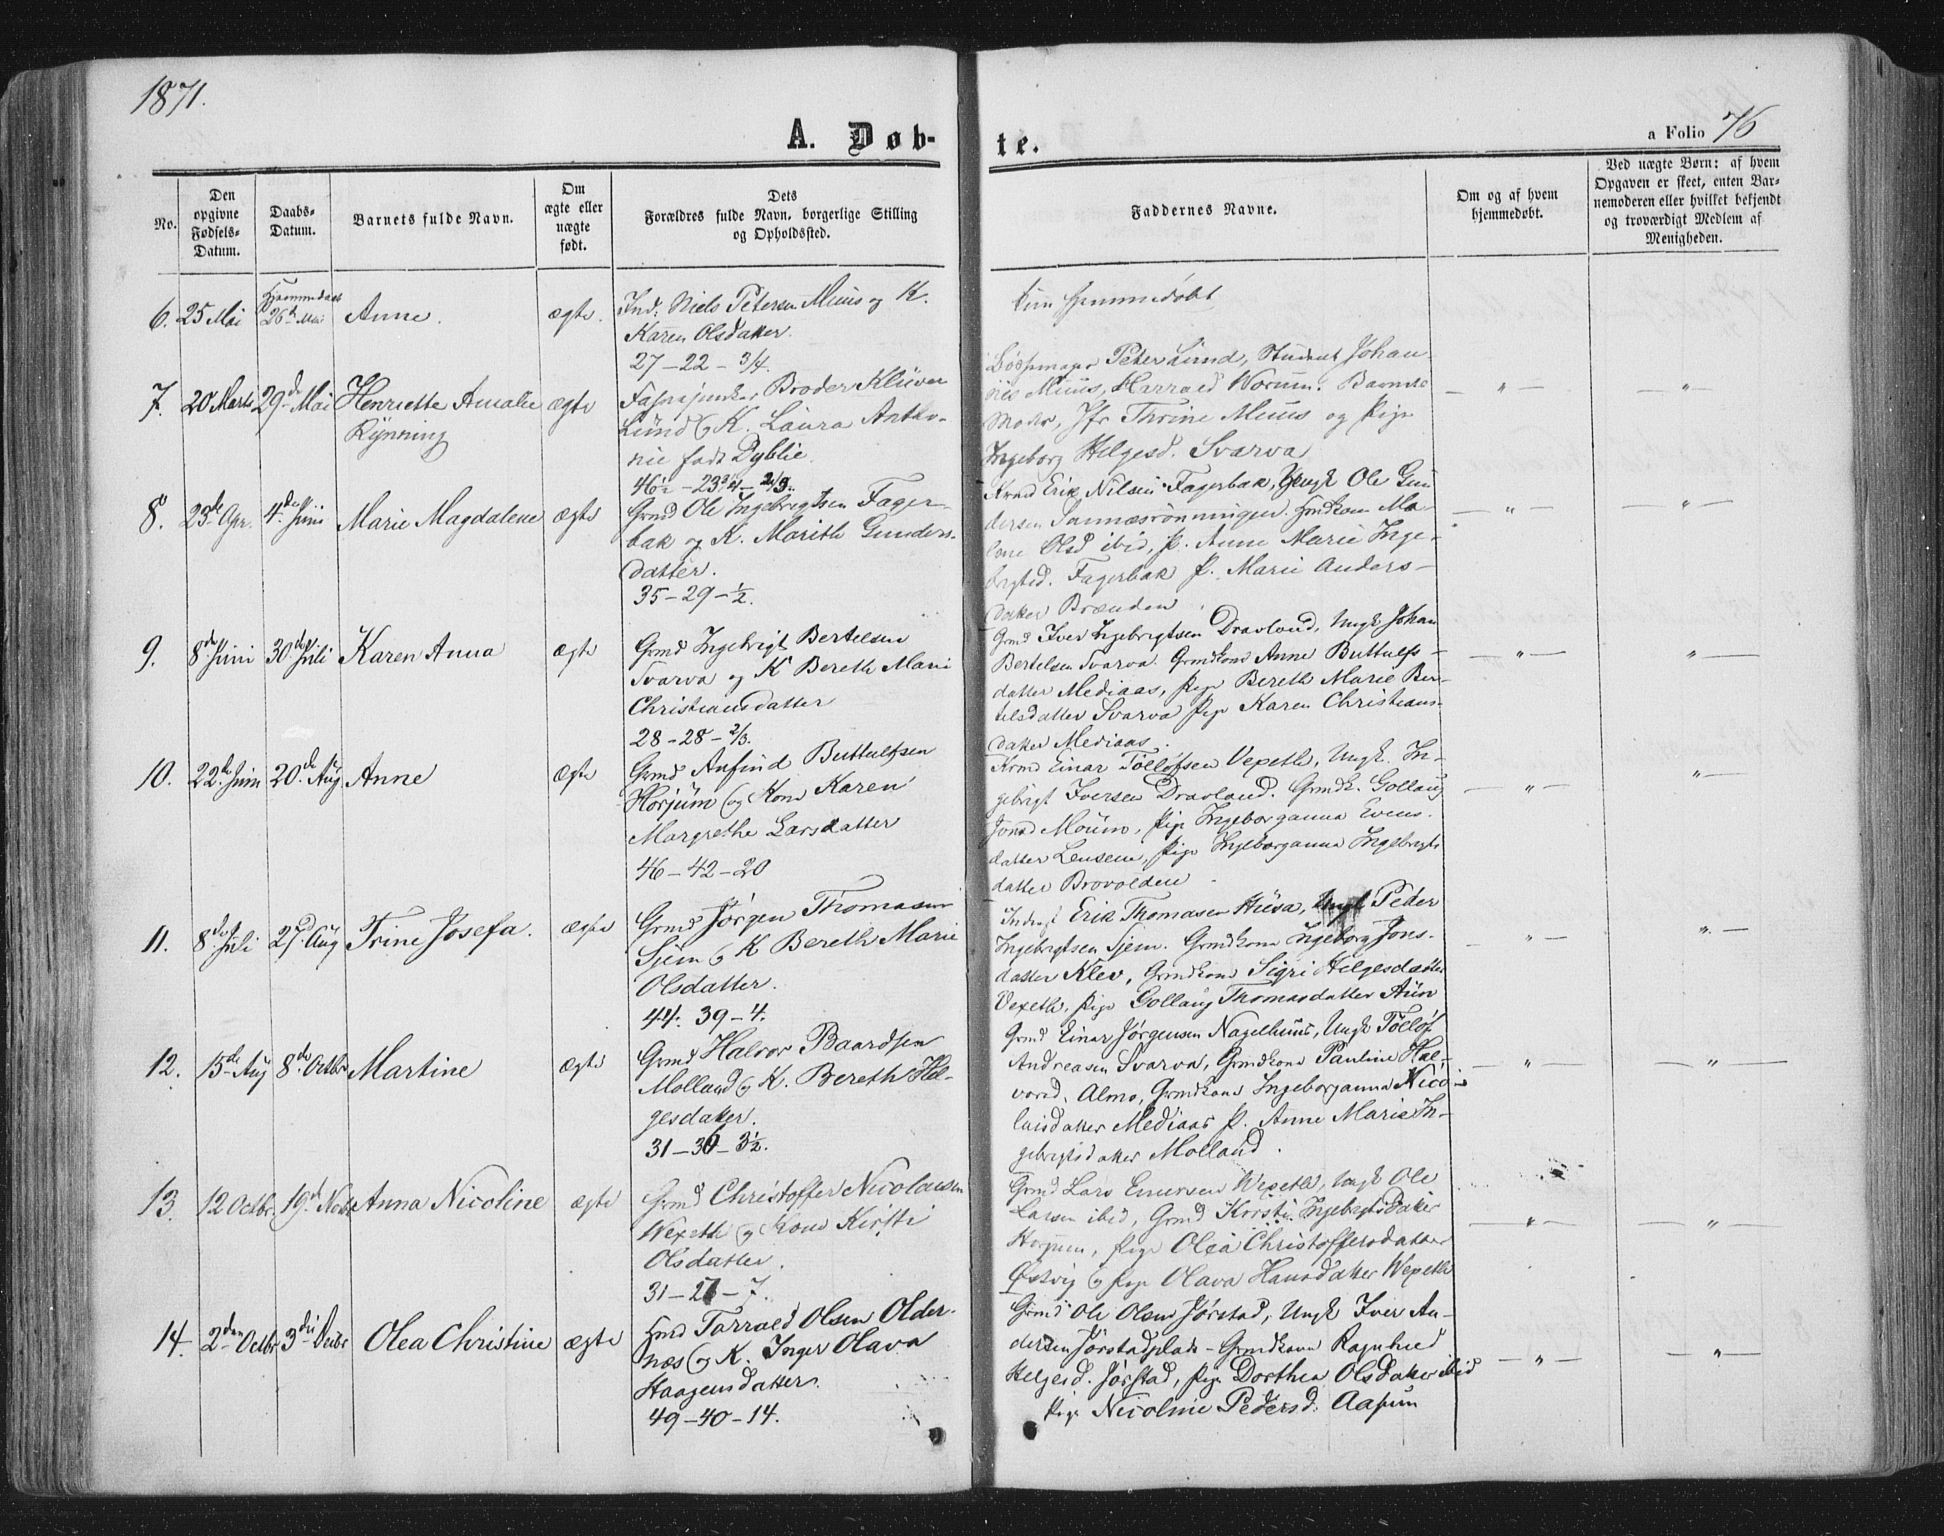 1871.
A. Døb-
te.
a Folio 76
No.
Den
opgivne
Fødsels-
Datum.
Daabs-
Datum.
Barnets fulde Navn.
Om
ægte eller
nægte
født.
Dets
Forældres fulde Navn, borgerlige Stilling
og Opholdssted.
Faddernes Navne.
Om og af hvem
hjemmedøbt.
Ved nægte Børn: af hvem
Opgaven er skeet, enten Bar-
nemoderen eller hvilket bekjendt
og troværdigt Medlem af
Menigheden.
6. 25 Mai
Hjemmedøbt
26 Mai
Anne.
ægte.
Ind. Niels Petersen Muus og K.
Karen Olsdatter.
27-22-3/4.
kun hjemmedøbt
7. 20 Marts 29de Mai
Henriette Amalie
Rynning
ægte
Broder Klüver
Lund og K. Laura Antho-
nie født Dyblie.
Peter Lund, Student Johan-
nes Muus, Harrald Worum. Barnets
Moder, Jfr Thrine Muus og Pige
Ingeborg Helgesd. Svarva
— " — — " —
8. 23de Apr. 4de Juni
Marie Magdalene
ægte
Grmd Ole Ingebrigtsen Fager-
bak og K. Marith Gunders-
datter.
35-29-1/2.
Erik Nilsen Fagerbak, Ungk Ole Gun-
dersen Sannæsrönningen. Hmdkone Ma-
lene Olsd ibid, P. Anne Marie Inge-
brigtsd. Fagerbak P. Marie Anders-
datter Brænden
— " — — " —
9. 8de Juni 30de Juli
Karen Anna
ægte
Grmd Ingebrigt Bertelsen
Svarva og K Bereth Marie
Christiansdatter
28-28-2/3.
Grmd Iver Ingebrigtsen Dravland, Ungk Johan
Bertelsen Svarva. Grmdkone Anne Buttulfs-
datter Mediaas, Pige Bereth Marie Ber-
telsdatter Svarva Pige Karen Christians-
datter Mediaas.
— " — " —
10. 22de Juni 20de Aug
Anne
ægte
Grmd Anfind Buttulfsen
Horjum og Kone Karen
Margrethe Larsdatter
46-42-20
Einar Tollofsen Vexeth, Ungk. In-
gebrigt Iversen Dravland. Grmdk. Gollaug
Jonsd Moum, Pige Ingeborganna Evens-
datter Lensem, Pige Ingeborganna Ingebrigts
datter Brovolden
— " — " —
11. 8de Juli 27d. Aug
Trine Josefa.
ægte
Grmd Jørgen Thomasen
Sjem og K Bereth Marie
Olsdatter.
44. 39-4.
Erik Thomasen Husa, Ungk Peder
Ingebrigtsen Sjem. Grmdkone Ingeborg Jons-
datter Klev, Grmdkone Sigri Helgesdatter
Vexeth, Pige Gollaug Thomasdatter Aun
— " — " —
12. 15de Aug 8de Octbr
Martine
ægte
Grmd Halvor Baardsen
Molland og K. Bereth Hel-
gesdatter.
31-30-3 1/2.
Grmd Einar Jørgensen Nagelhuus, Ungk Tollof
Andreasen Svarva, Grmdkone Pauline Hal-
vorsd. Almo, Grmdkone Ingeborganna Nico-
laisdatter Mediaas P. Anne Marie In-
gebrigtsdatter Molland.
— " — — " —
13. 12 Octbr. 19de Novbr
Anna Nicoline
ægte
Grmd Christoffer Nicolaisen
Wexeth og Kone Kirsti
Olsdatter.
Grmd Lars Einersen Wexeth, Ungk Ole
Larsen ibid, Grmd Kirsti Ingebrigtsdatter
Horjum, Pige Olea Christoffersdatter
Østvig og Pige Olava Hansdatter Wexeth
— " — — " —
14. 2den Octbr. 3die Decbr
Olea Christine
ægte
Hmd Tarrald Olsen Older-
næs og K. Inger Olava
Haagensdatter.
49-40-14.
Grmd Ole Olsen Jørstad, Ungk Iver An-
dersen Jørstadplads - Grmdkone Ragnhild
Helgesd. Jørstad, Pige Dorthea Olsdatter ibid
Pige Nicoline Pedersd. Aasum
— " — — " —